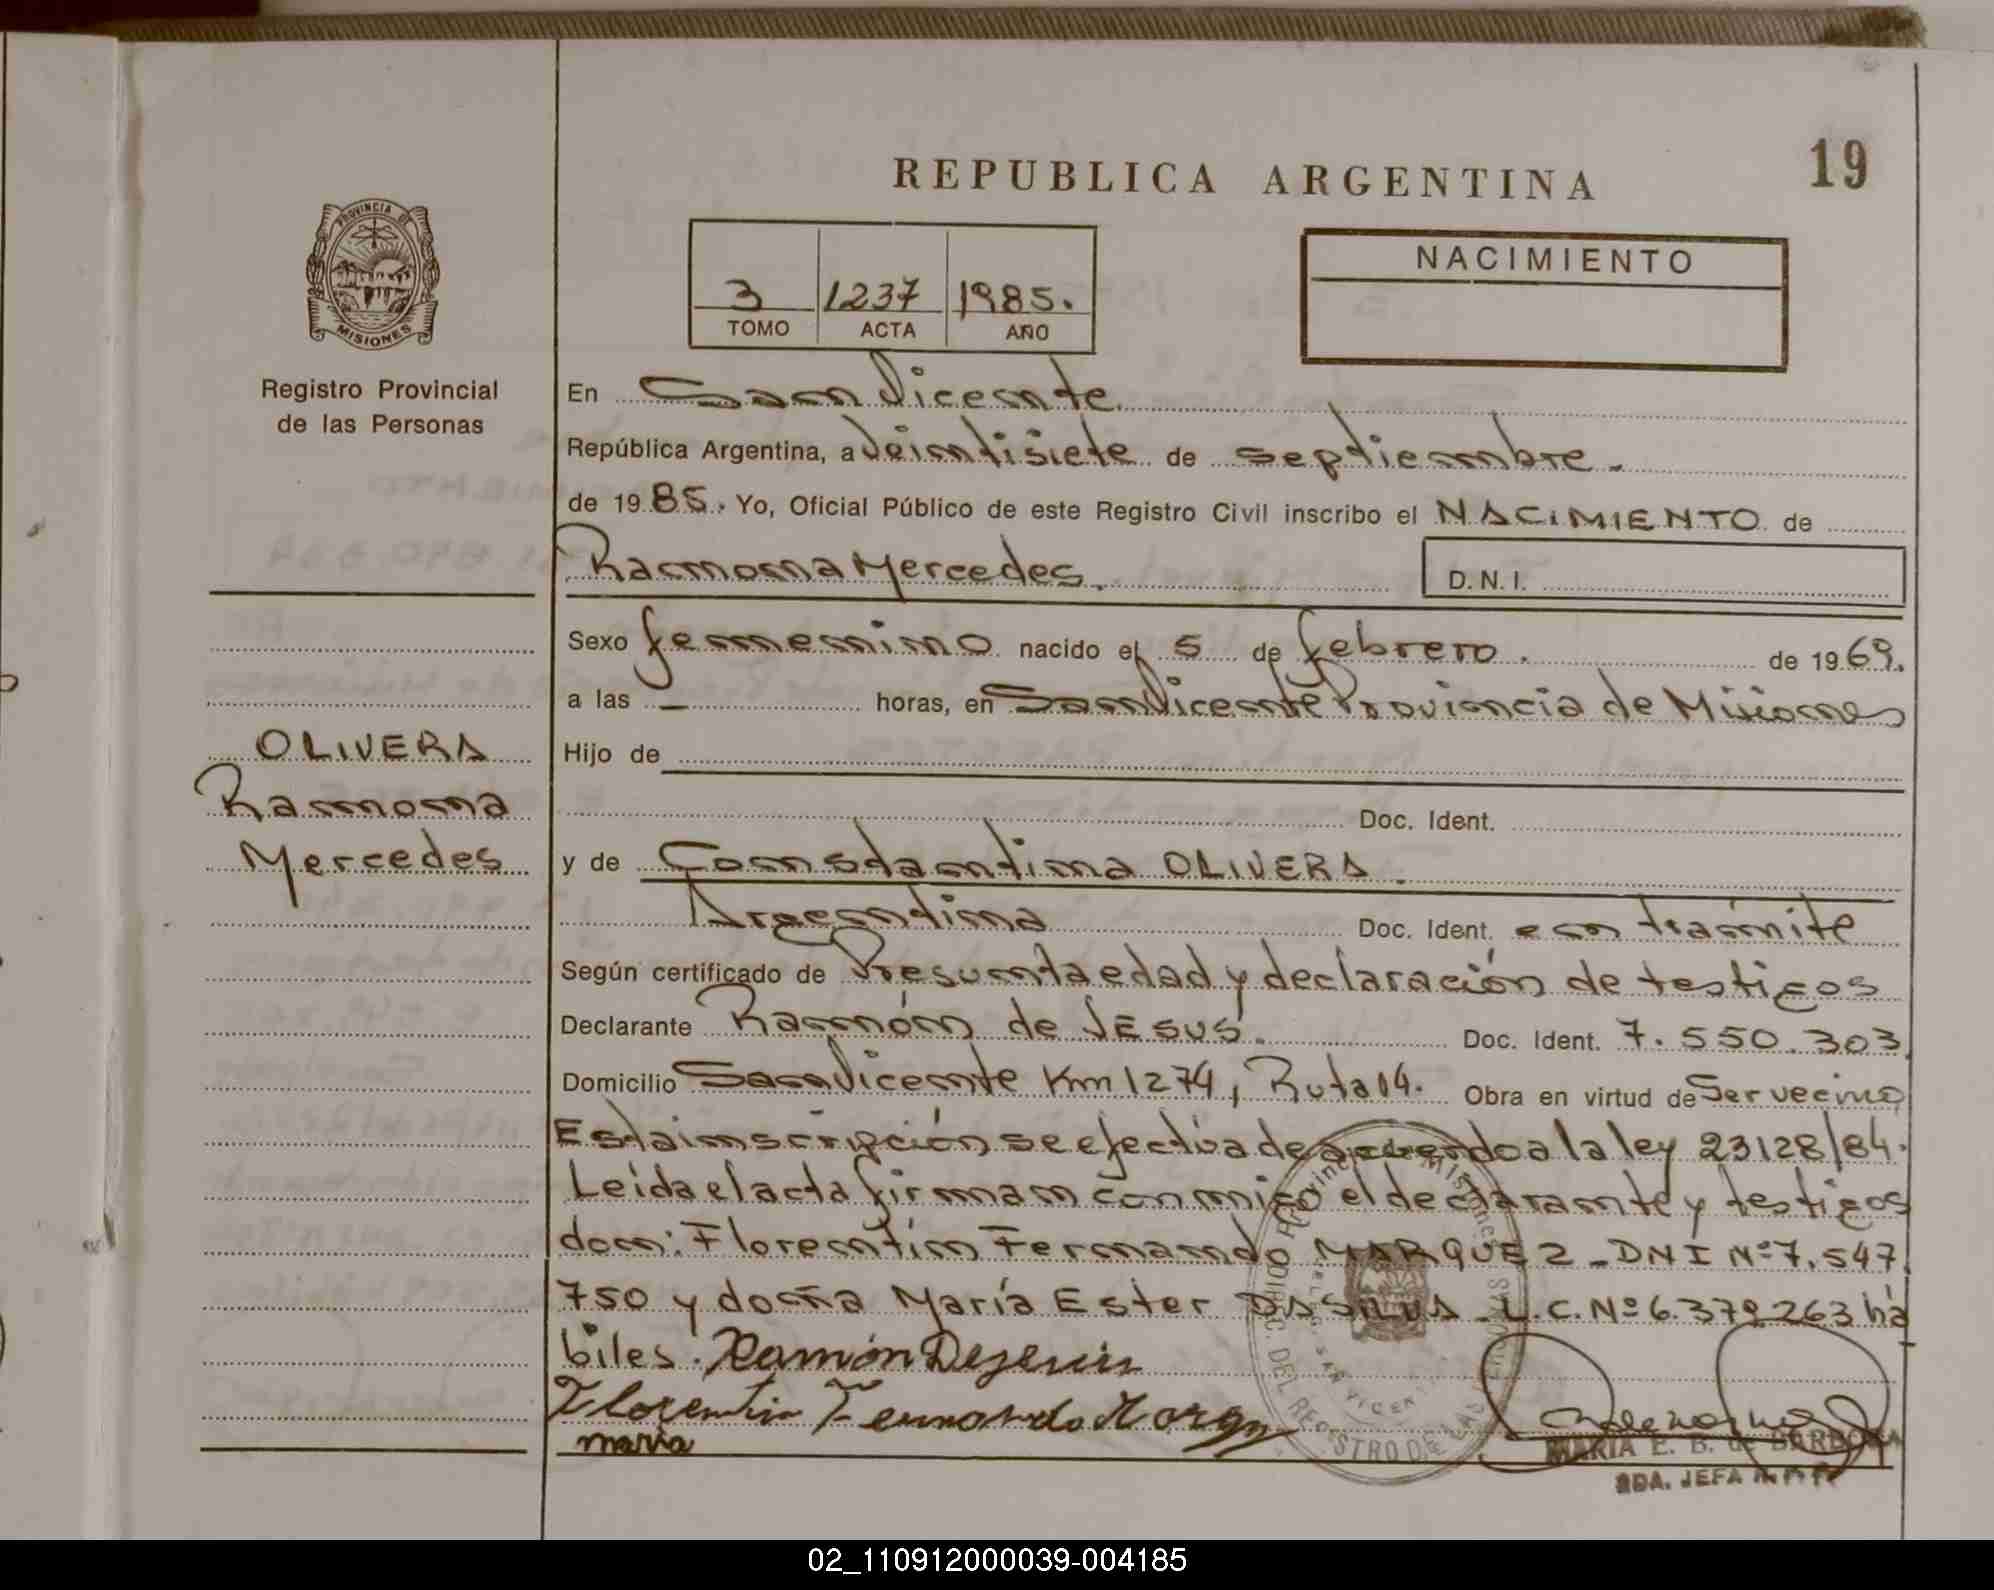 REPUBLICA ARGENTINA
19
PROVINCIA DE
MISIONES
Registro Provincial
de las Personas
3 1237 1985.
TOMO ACTA AÑO
NACIMIENTO
En San Vicente
República Argentina, a veintisiete de septiembre.
de 1985. Yo, Oficial Público de este Registro Civil inscribo el NACIMIENTO de
Ramona Mercedes. D.N.I.
Sexo femenino nacido el 5 de febrero. de 1969.
a las — horas, en San Vicente Provincia de Misiones
Hijo de
Doc. Ident.
y de Constantina OLIVERA.
Argentina Doc. Ident. en trámite
Según certificado de Presunta edad y declaración de testigos
Declarante Ramón de JESUS. Doc. Ident. 7.550.303
Domicilio San Vicente Km 1274, Ruta 14. Obra en virtud de Ser vecino
Esta inscripción se efectúa de acuerdo a la ley 23128/84.
Leída el acta firman conmigo el declarante y testigos
don: Florentín Fernando MARQUEZ - DNI Nº 7.547
750 y doña María Ester DA SILVA - L.C. Nº 6.379263 há
biles.
OLIVERA
Ramona
Mercedes
Florentin Fernando
maria
MARIA E. B. de BARBOZA
2DA. JEFA
02_110912000039-004185